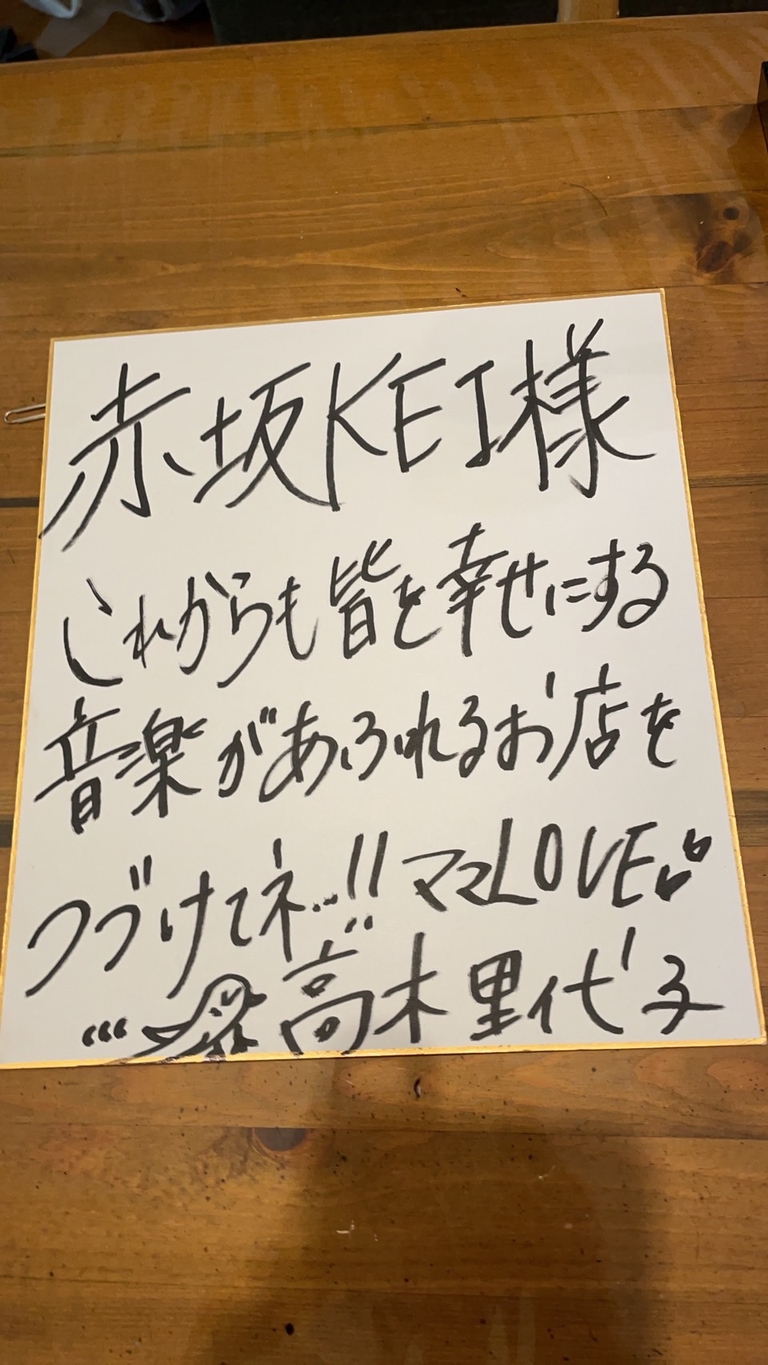 赤坂KEI様
これからも皆を幸せにする
音楽があふれるお店を
つづけてネ…!! ママLOVE♥
高木里代子